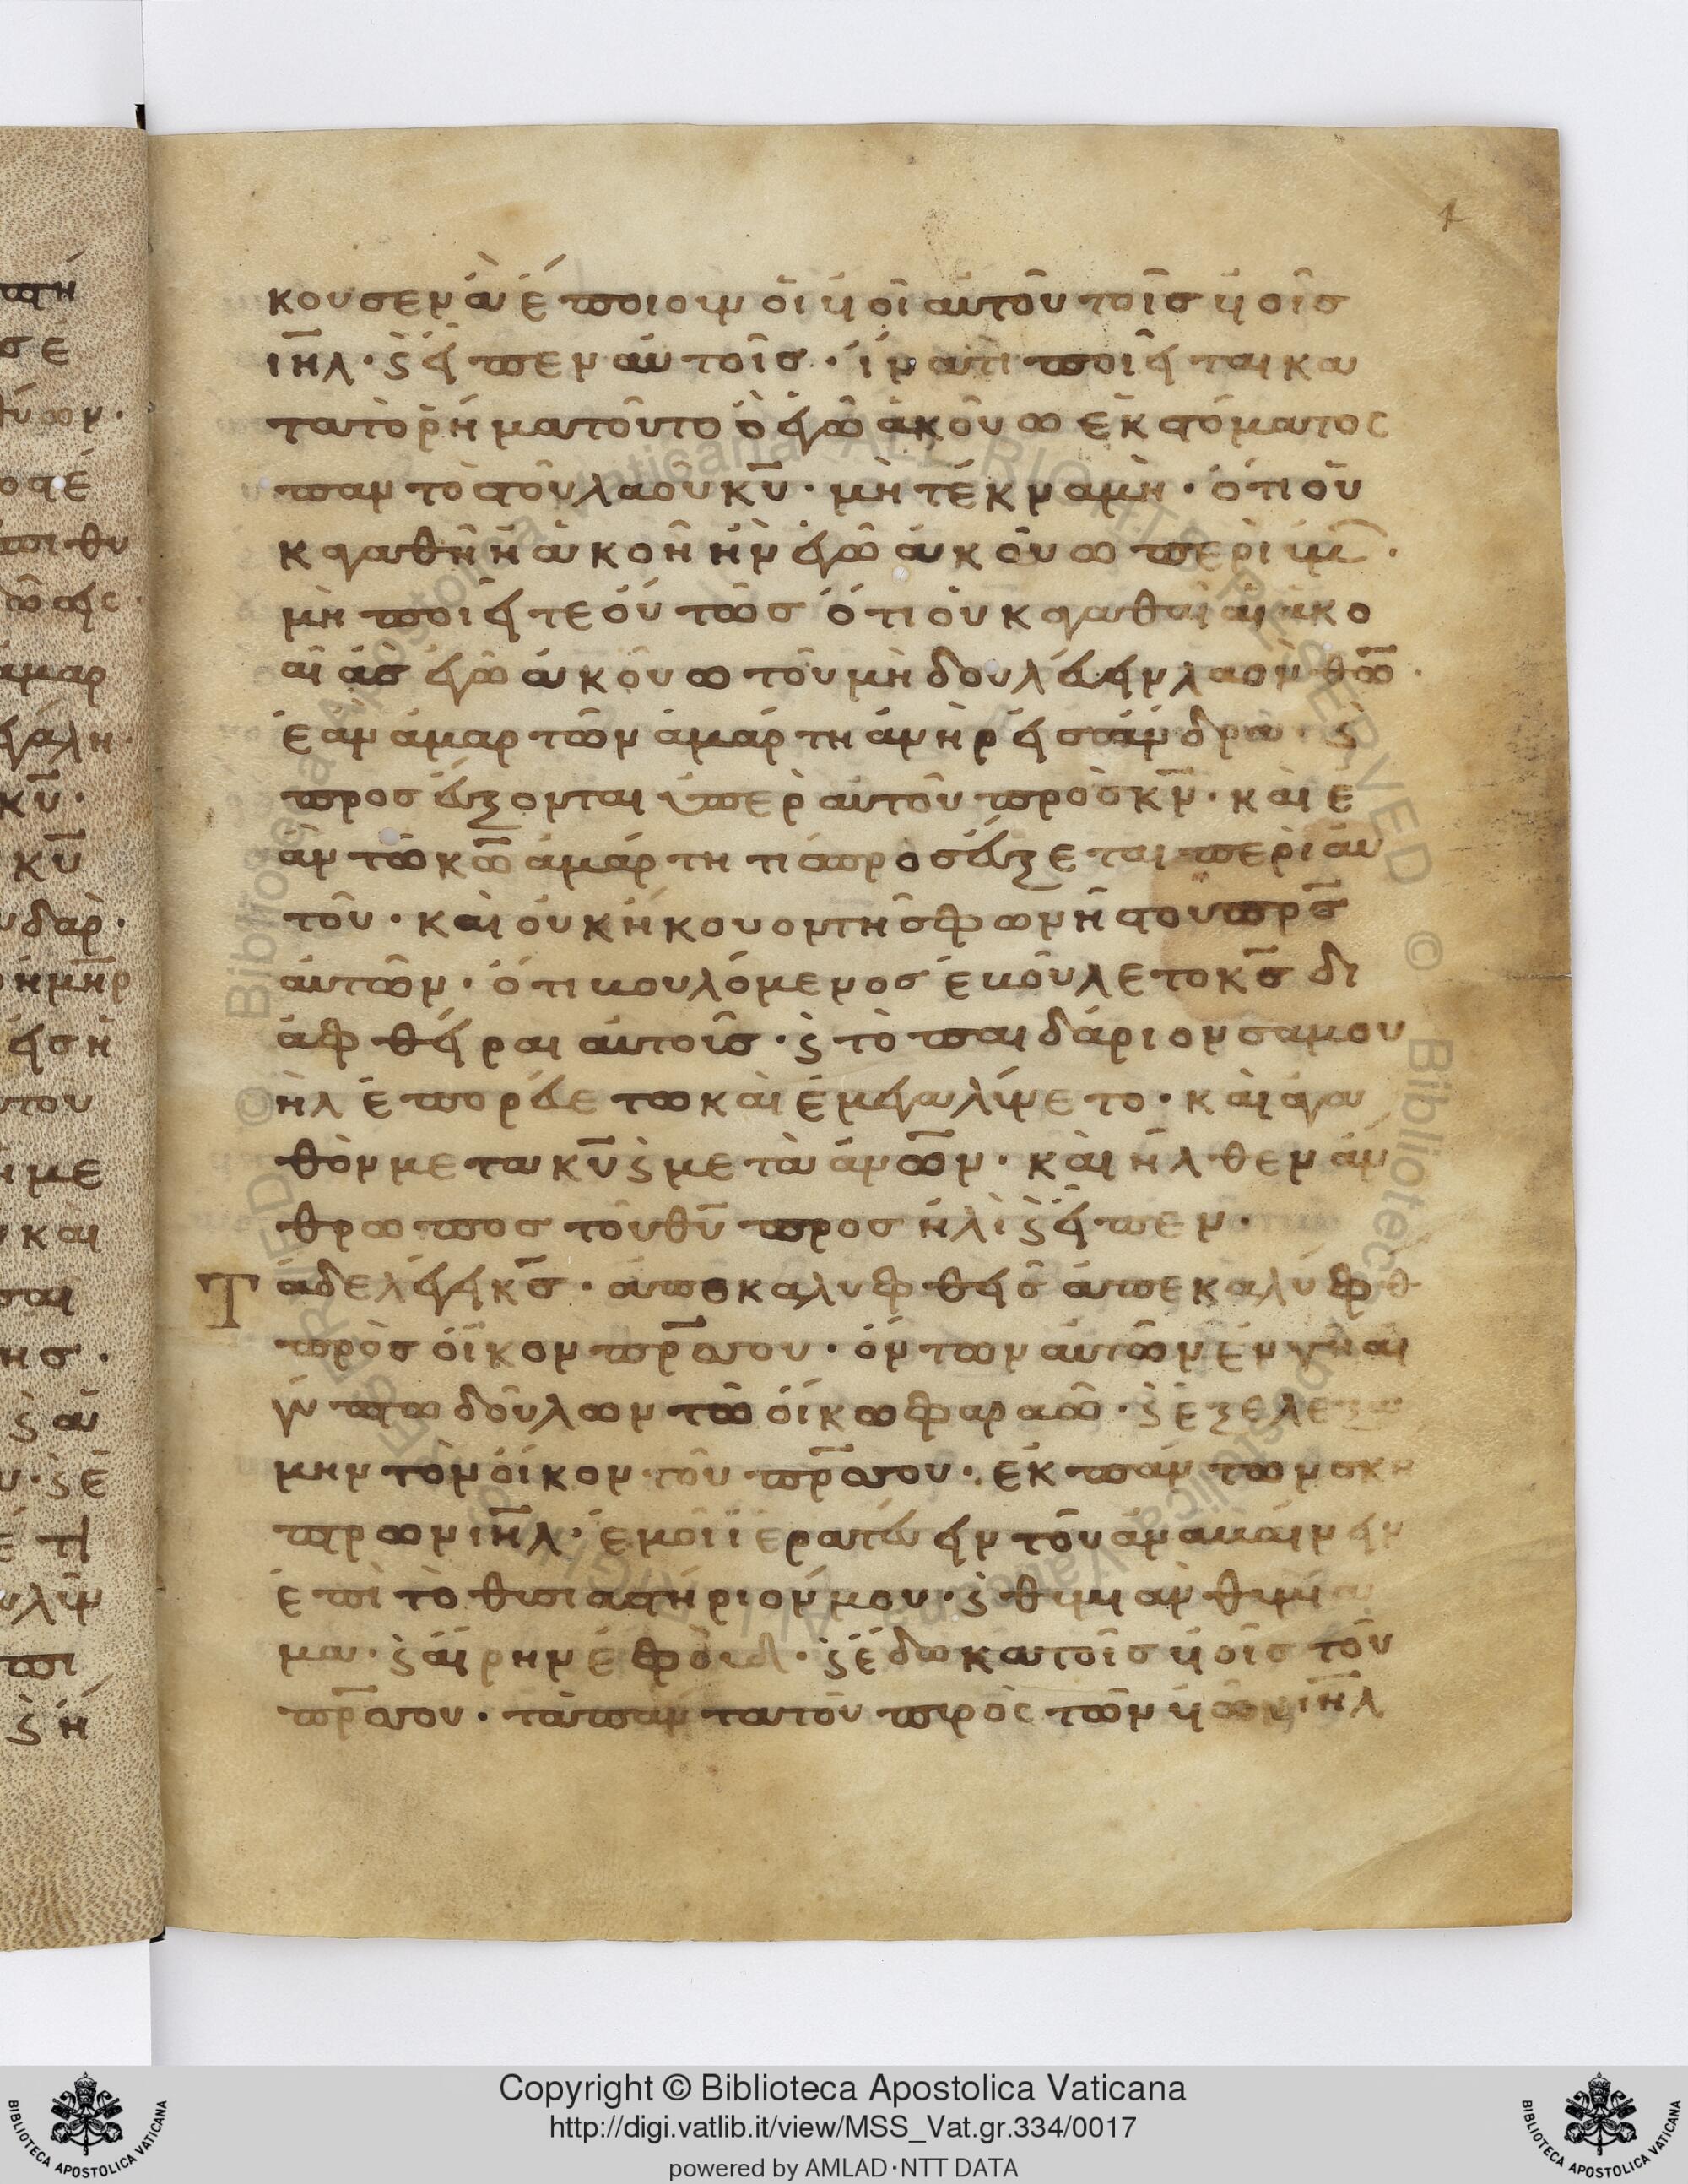 1
κουσεν ἃ ἐποίουν οἱ υἱοὶ αὐτοῦ τοῖς υἱοῖς
ιηλ̅· ϗ εἶπεν αὐτοῖς· ἵνα τί ποιεῖται κα
τὰ τὸ ῥῆμα τοῦτο ὃ ἐγὼ ἀκούω ἐκ στόματος
παντὸς τοῦ λαοῦ κυ̅· μὴ τέκνα μὴ· ὅτι οὐ
κ ἀγαθὴ ἡ ἀκοὴ ἣν ἐγὼ ἀκούω περὶ ὑμῶν·
μὴ ποιεῖτε οὕτως ὅτι οὐκ ἀγαθαὶ αἱ ἀκο
αὶ ἃς ἐγὼ ἀκούω τοῦ μὴ δουλεύειν λαὸν θω̅·
ἐὰν ἁμαρτὼν ἁμάρτη ἀνὴρ εἰς ἄνδρα ϗ
προσεύξονται ὑπὲρ αὐτοῦ πρὸς κν̅· καὶ ἐ
ὰν τῶ κω̅ ἁμάρτη τίς προσεύξεται περὶ αὐ
τοῦ· καὶ οὐκ ἤκουον τῆς φωνῆς τοῦ πρς̅
αὐτῶν· ὅτι βουλόμενος ἐβούλετο κς̅ δι
αφθεῖραι αὐτούς· ϗ τὸ παιδάριον σαμου
ὴλ ἐπορεύετο καὶ ἐμεγαλύνετο· καὶ ἀγα
θὸν μετὰ κυ̅ ϗ μετὰ ἀνω̅ν· καὶ ἦλθεν ἄν
θρωπος τοῦ θυ̅ πρὸς ἠλὶ ϗ εἶπεν·
Τάδε λέγει κς̅· ἀποκαλυφθεὶς ἀπεκαλύφθ
πρὸς οἶκον πρ̅ς σου· ὄντων αὐτῶν ἐν γῆ αἰ
γύπτω δούλων τῶ οἴκω φαραώ· ϗ ἐξελεξά
μην τὸν οἶκον τοῦ πρ̅ς σου· ἐκ πάντων σκή
πτρων ιηλ̅· ἐμοὶ ἱερατεύειν τοῦ ἀναβαίνειν
ἐπὶ τὸ θυσιαστήριόν μου· ϗ θυμιᾶν θυμία
μα· ϗ αἴρειν ἐφούδ· ϗ ἔδωκα τοῖς υἱοῖς τοῦ
πρ̅ς σου· τὰ πάντα τοῦ πυρὸς τῶν υἱῶν ιηλ̅
Copyright © Biblioteca Apostolica Vaticana
http://digi.vatlib.it/view/MSS_Vat.gr.334/0017
powered by AMLAD·NTT DATA